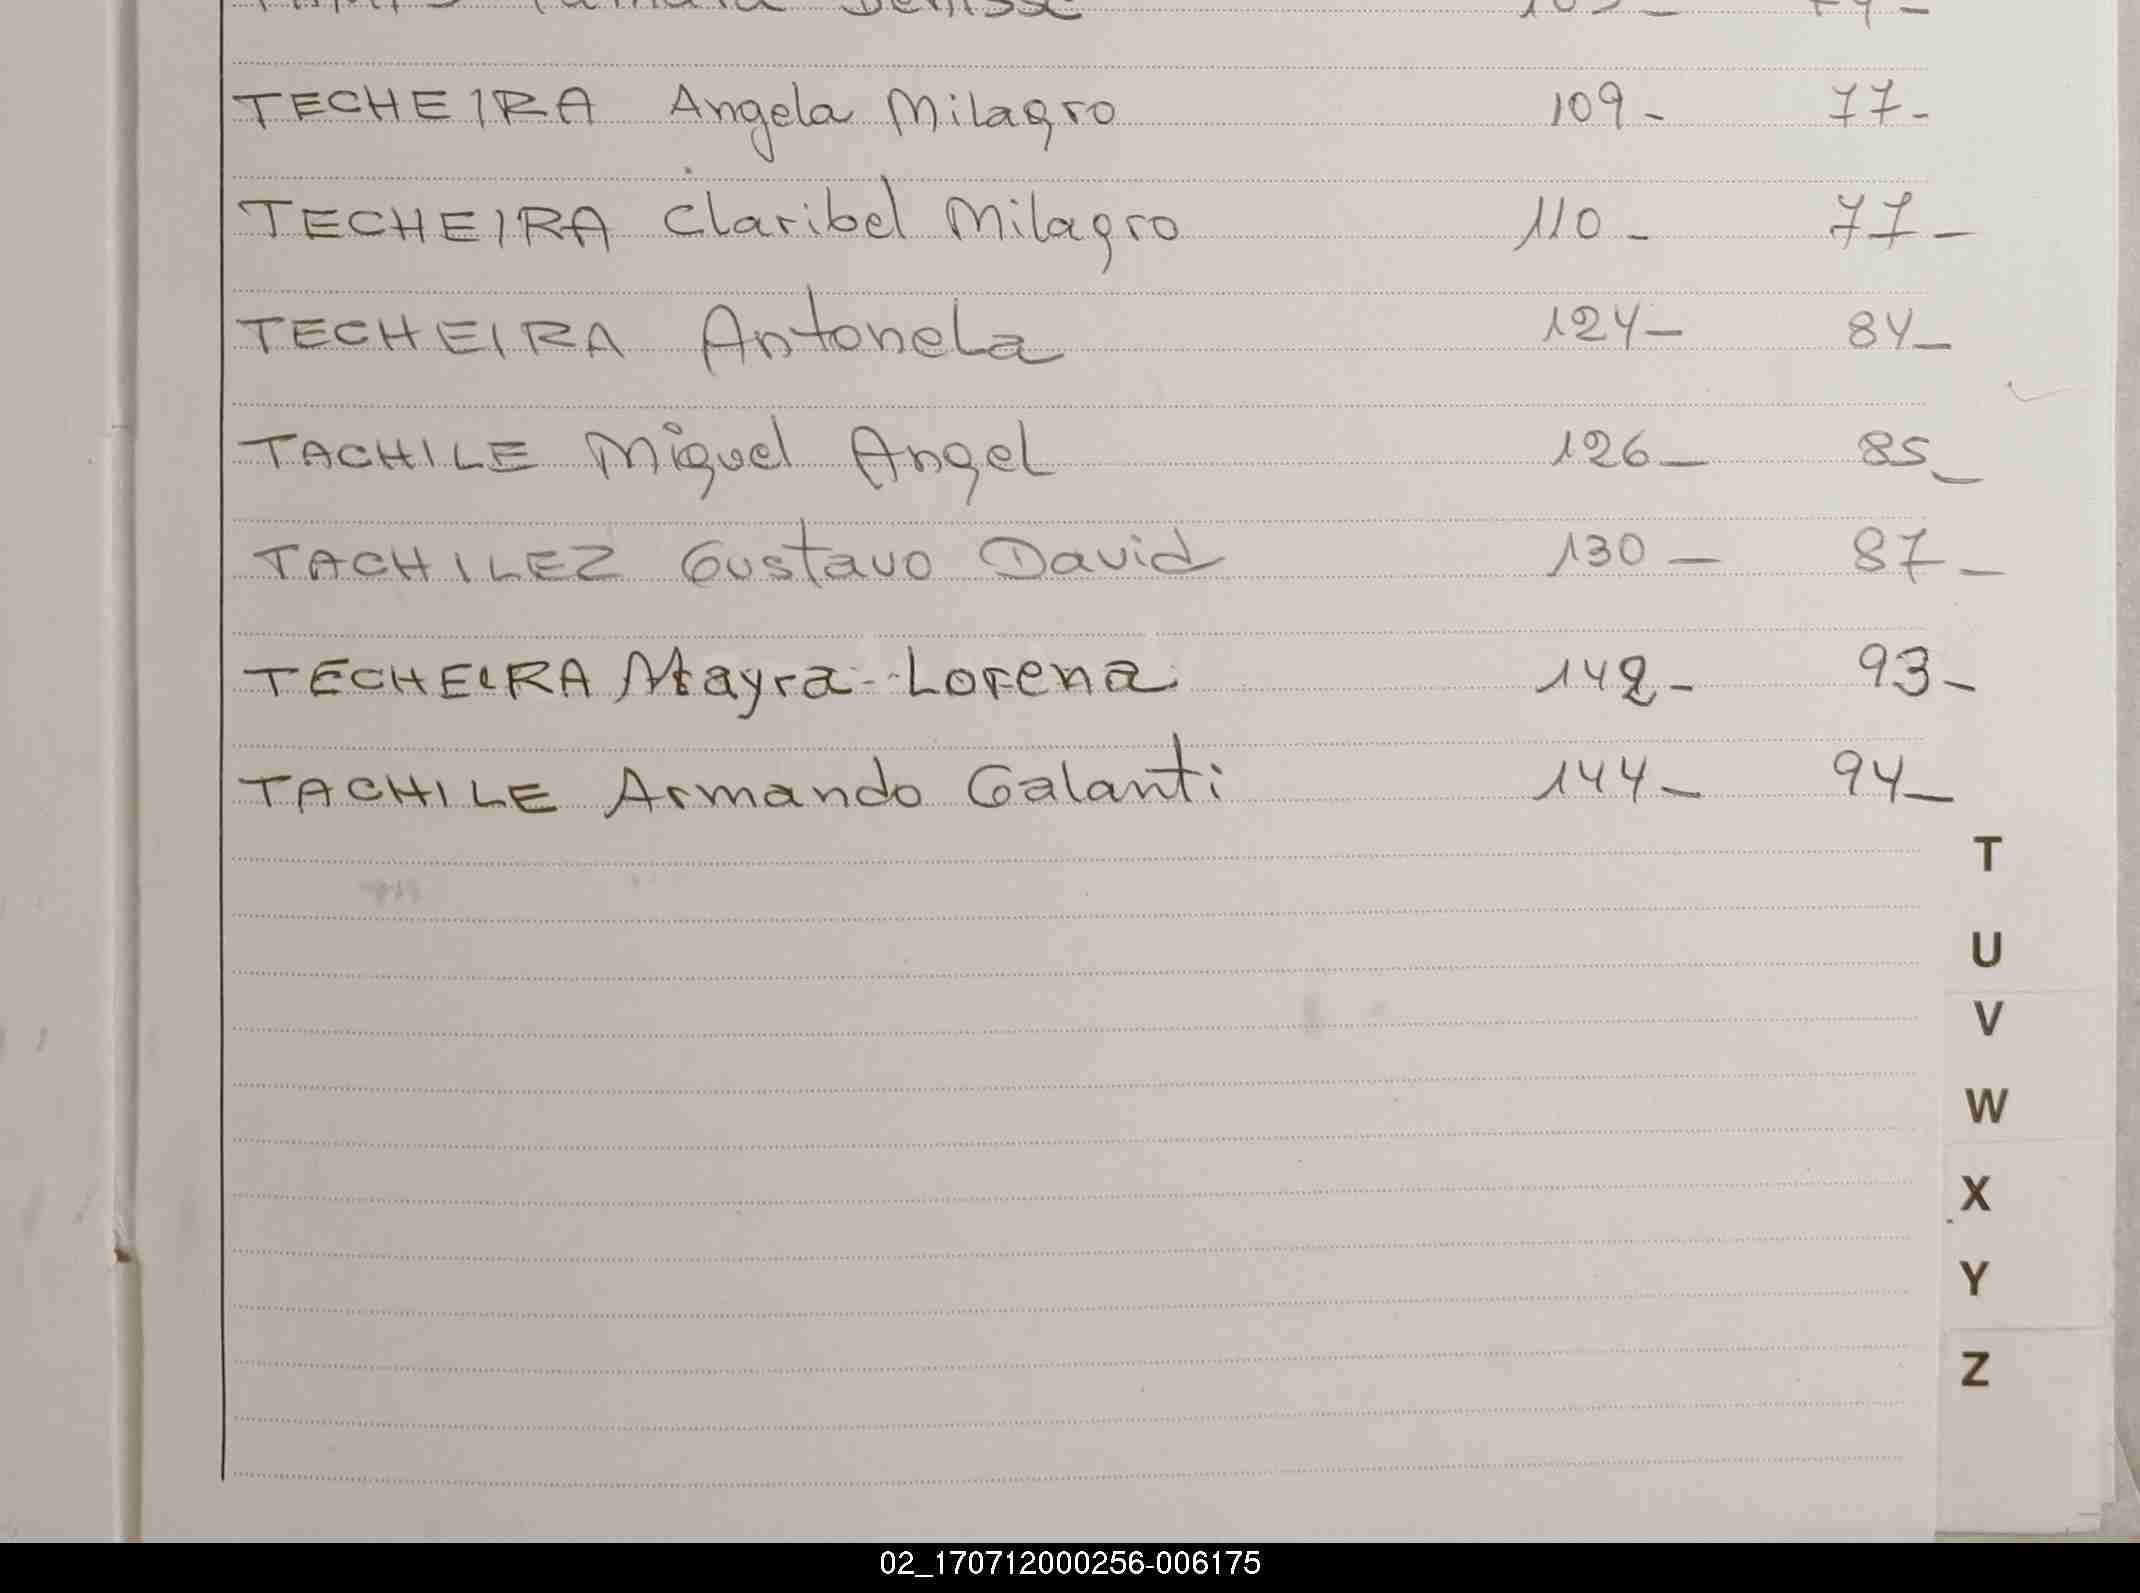 Denisse
TECHEIRA Angela Milagro 109- 77-
TECHEIRA Claribel Milagro 110- 77-
TECHEIRA Antonela 124- 84-
TACHILE Miguel Angel 126- 85-
TACHILEZ Gustavo David 130- 87-
TECHEIRA Mayra Lorena 142- 93-
TACHILE Armando Galanti 144- 94-
T
U
V
W
X
Y
Z
02_170712000256-006175